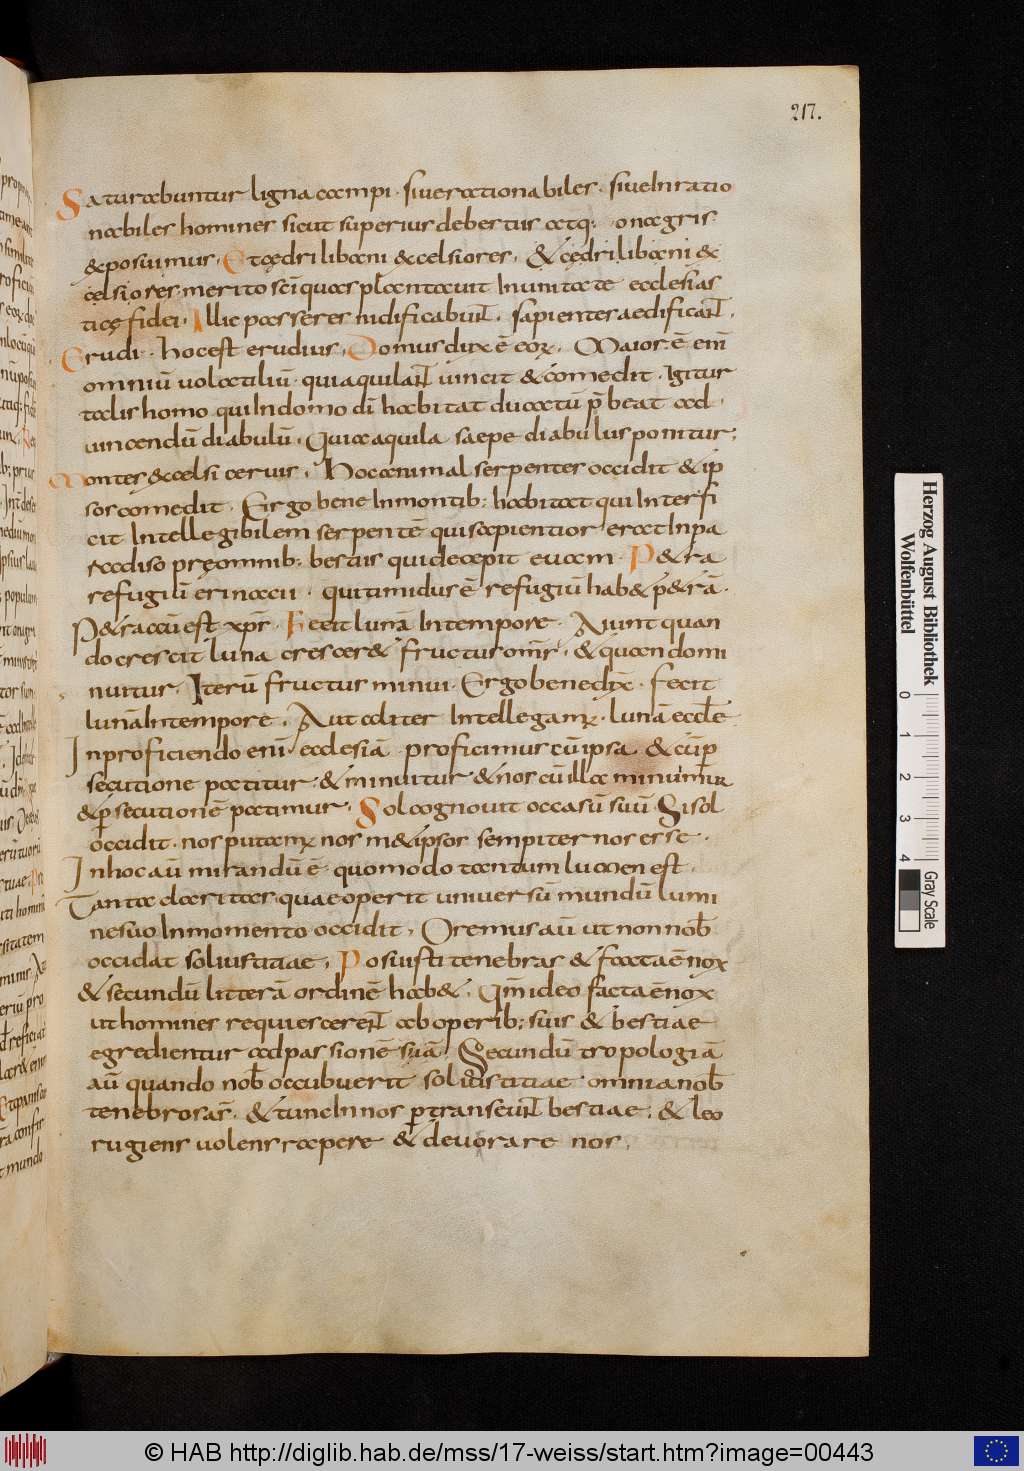 217.
Saturabuntur ligna campi · siue rationabiles · siue Inratio
nabiles homines sicut superius de bestiis atq: onagris
& posuimus · Et cędri libani & celsiores · & cędri libani &
celsiores · merito sc̄i quas plantauit In unitate ecclesias
ticę fidei · Illic passeres nidificabunt · sapienter aedificant ·
Erudi · hoc est erudius · Domus dux ē eoꝝ · Maior ē eni
omniū uolatiliū · quia aquilam uincit & comedit · Igitur
talis homo qui In domo dī habitat ducatū p̄beat ad
uincendū diabulū · Quia aquila saepe diabulus ponitur;
Montes & celsi ceruis · Hoc animal serpentes occidit & ip
sos comedit · Ergo bene Inmontib; habitat qui Interfi
cit Intellegibilem serpentē qui sapientior erat Inpa
radiso pręomnib; bestiis qui decepit euam · P&ra
refugiū erinacii · qui timidus ē refugiū hab& p&rā ·
P&ra aū est xp̄s · Fecit lunā Intempore · Aiunt quan
do crescit luna crescer& fructus om̄s · & quando mi
nuitur · Iterū fructus minui · Ergo bene dix̄ · fecit
lunā Intempore · Aut aliter Intellegam; · lunā eccl̄e
Inproficiendo eni ecclesiā proficimus cū ipsa & cū p
secutione patitur · & minuitur & nos cū illa minuimur
& p secutionē patimur · Sol cognouit occasū suū · Si sol
occidit · nos putam; nos m& ipsos sempiternos esse ·
Inhoc aū mirandū ē · quomodo tantum lumen est
Tantae claritas · quae operit uniuersū mundū lumi
ne suo Inmomento occidit · Oremus aū ut non nob̄
occidat sol iustitiae · Posuisti tenebras & facta ē nox
& secundū litterā ordinē hab& · Qm̄ ideo facta ē nox
ut homines requiescerent ab operib; suis & bestiae
egredientur ad passionē suā · Secundū tropologiā
aū quando nob̄ occubuerit sol iustitiae · omnia nob̄
tenebrosa s̄ · & tunc In nos ptranseunt bestiae · & leo
rugiens uolens rapere & deuorare nos ·
Herzog August Bibliothek
Wolfenbüttel
0 1 2 3 4
Gray Scale
© HAB http://diglib.hab.de/mss/17-weiss/start.htm?image=00443